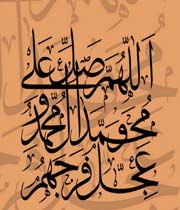 اَللّهُمَّ صَلِّ عَلی
مُحَمَّدٍ وَ آلِ مُحَمَّدٍ وَ
عَجِّل فَرَجَهُم